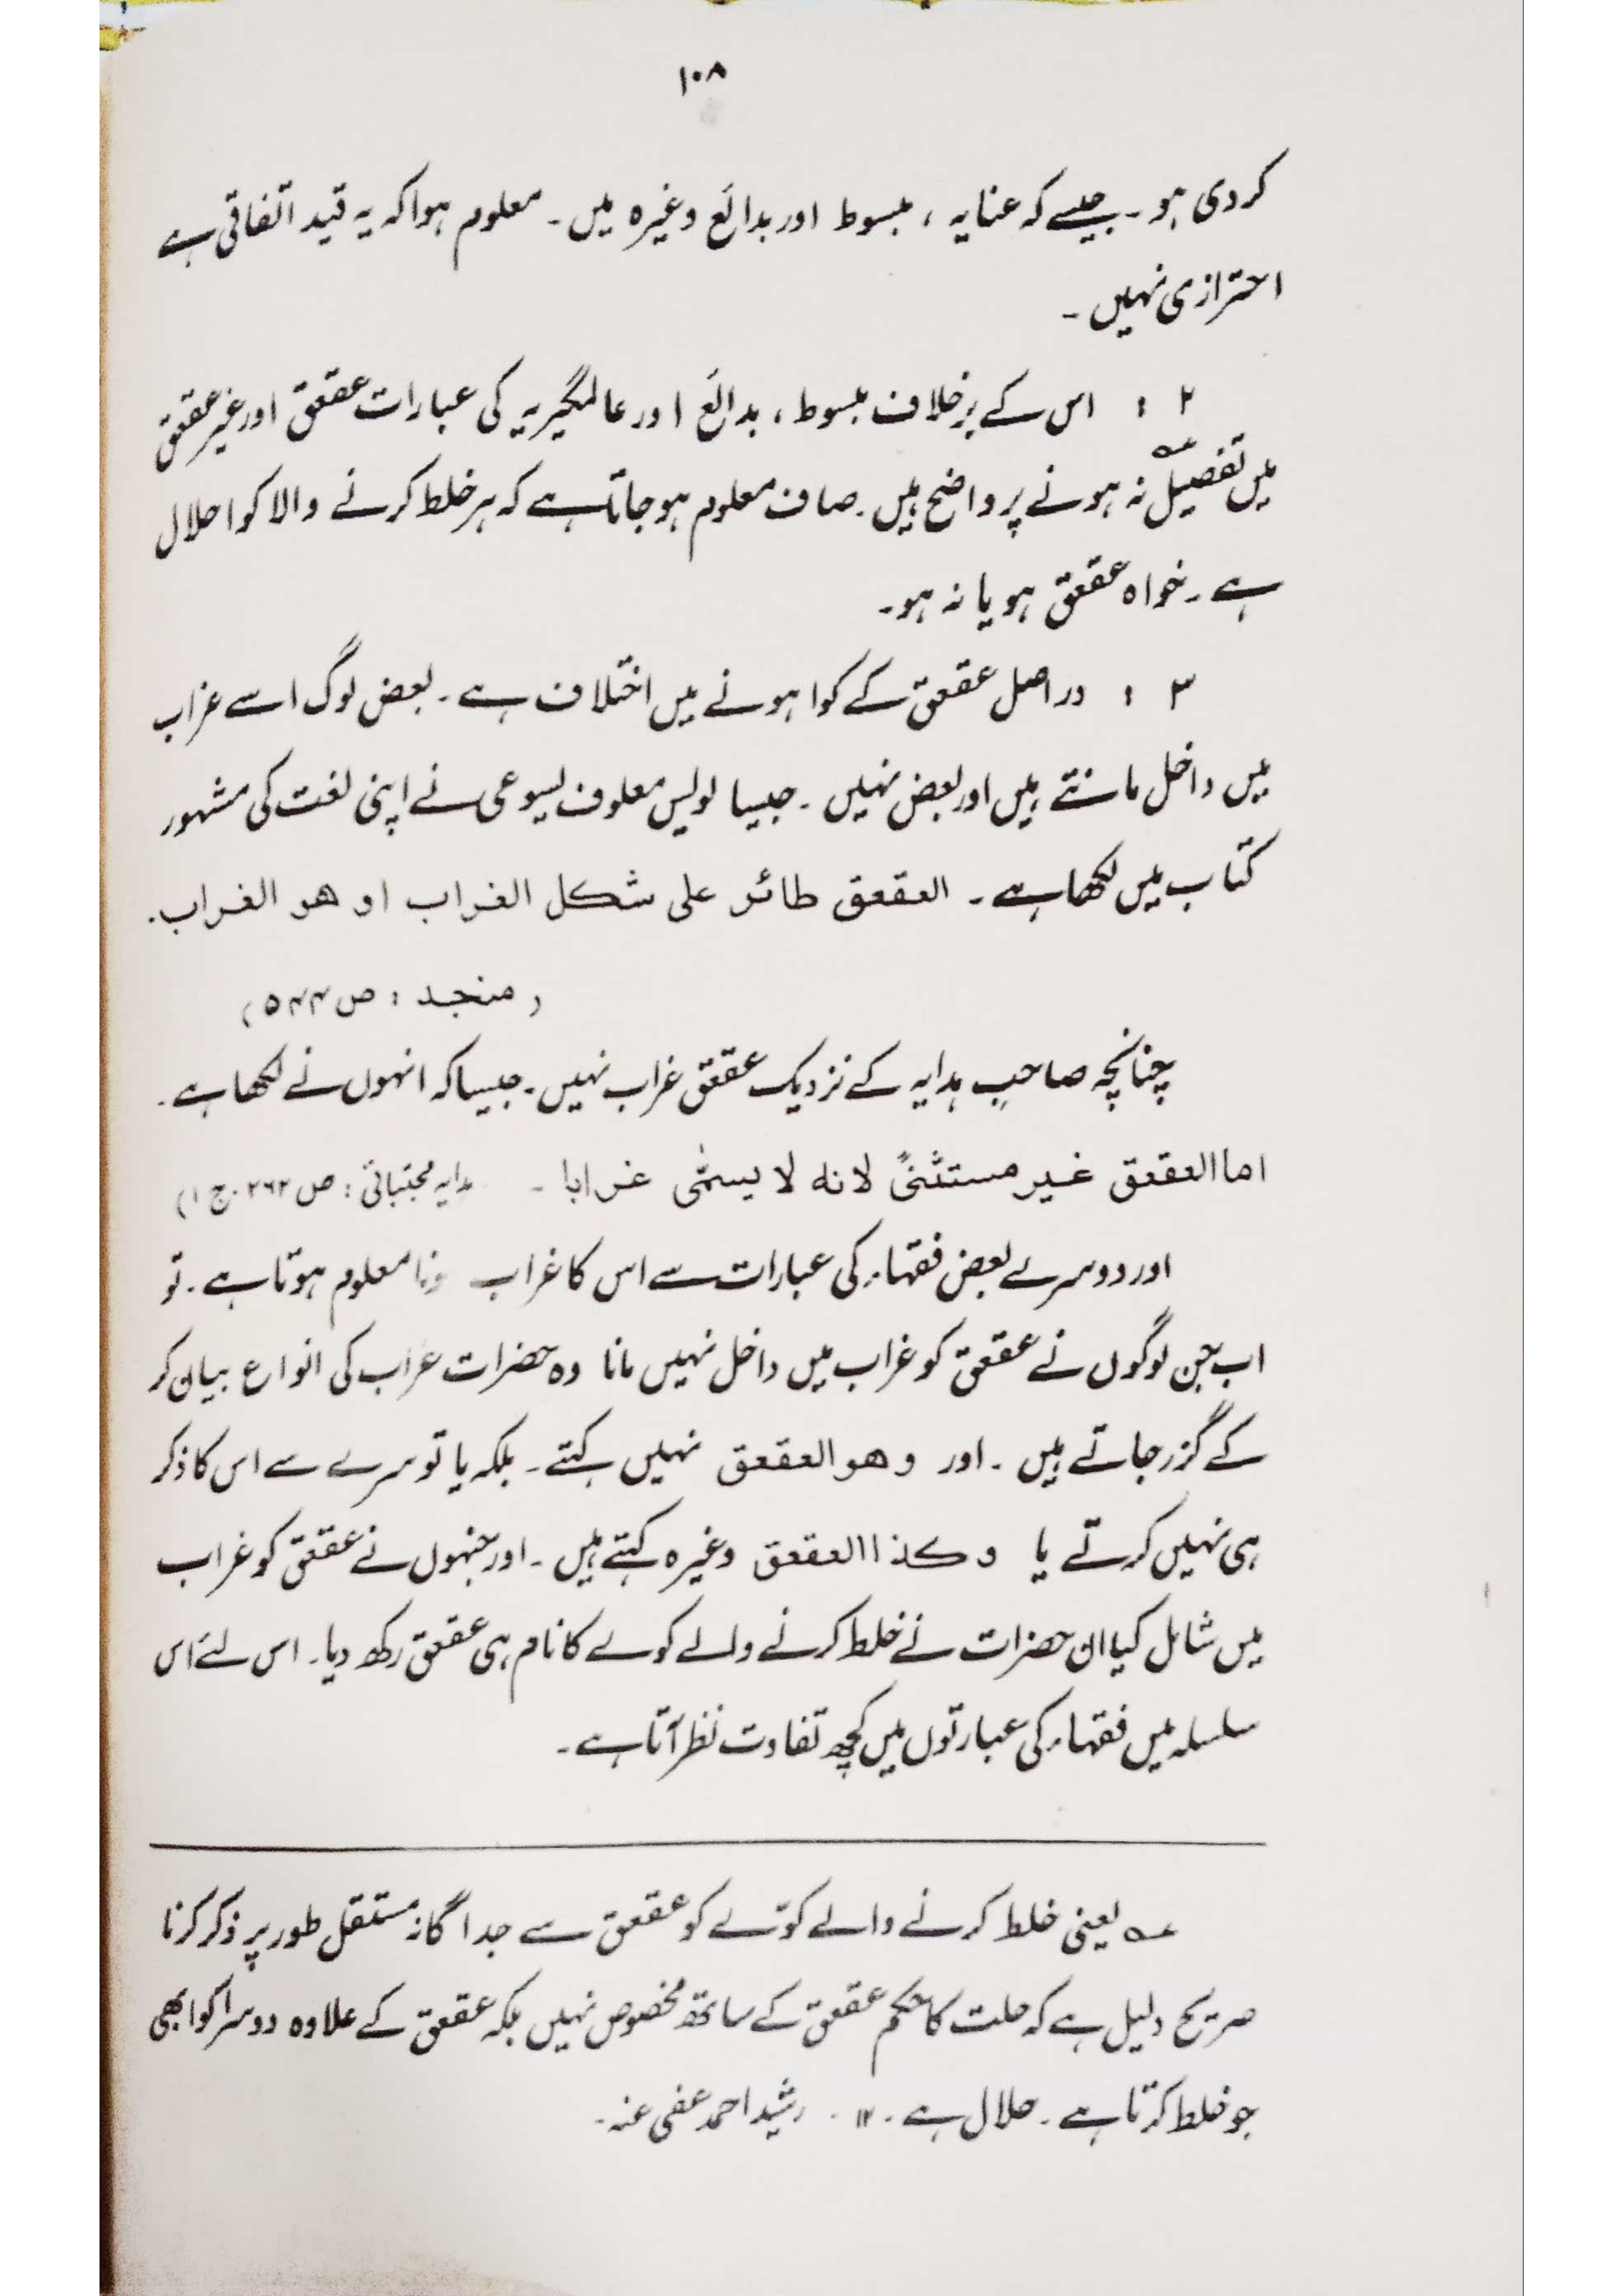 ۱۰۸
کردی ہو۔ جیسے کہ عنایہ ، مبسوط اور بدائع وغیرہ میں۔ معلوم ہوا کہ یہ قید اتفاقی ہے
احترازی نہیں۔
۲ : اس کے برخلاف مبسوط ، بدائع اور عالمگیریہ کی عبارات عقعق اور غیر عقعق
میں تفصیل عہ نہ ہونے پر واضح ہیں۔ صاف معلوم ہو جاتا ہے کہ ہر خلط کرنے والا کوا حلال
ہے۔ خواہ عقعق ہو یا نہ ہو۔
۳ : در اصل عقعق کے کوا ہونے میں اختلاف ہے۔ بعض لوگ اسے غراب
میں داخل مانتے ہیں اور بعض نہیں۔ جیسا لولیس معلوف لیسوعی نے اپنی لغت کی مشہور
کتاب میں لکھا ہے۔ العقعق طائر على شكل الغراب او هو الغراب۔
( منجد : ص ۵۴۴ )
چنانچہ صاحبِ ہدایہ کے نزدیک عقعق غراب نہیں۔ جیسا کہ انہوں نے لکھا ہے۔
اما العقعق غير مستثنیً لانه لا یسمّٰی غرابا۔ ہدایہ مجتبائی : ص ۲۶۲ ۔ ج ۱ )
اور دوسرے بعض فقہاء کی عبارات سے اس کا غراب معلوم ہوتا ہے۔ تو
اب جن لوگوں نے عقعق کو غراب میں داخل نہیں مانا وہ حضرات غراب کی انواع بیان کر
کے گزر جاتے ہیں۔ اور وھو العقعق نہیں کہتے۔ بلکہ یا تو سرے سے اس کا ذکر
ہی نہیں کرتے یا وکذا العقعق وغیرہ کہتے ہیں۔ اور جنہوں نے عقعق کو غراب
میں شامل کیا ان حضرات نے خلط کرنے والے کوے کا نام ہی عقعق رکھ دیا۔ اس لئے اس
سلسلہ میں فقہاء کی عبارتوں میں کچھ تفاوت نظر آتا ہے۔
عہ یعنی خلط کرنے والے کوّے کو عقعق سے جداگانہ مستقل طور پر ذکر کرنا
صریح دلیل ہے کہ حلت کا حکم عقعق کے ساتھ مخصوص نہیں بلکہ عقعق کے علاوہ دوسرا کوا بھی
جو خلط کرتا ہے۔ حلال ہے۔ ۱۲ ۔ رشید احمد عفی عنہ۔